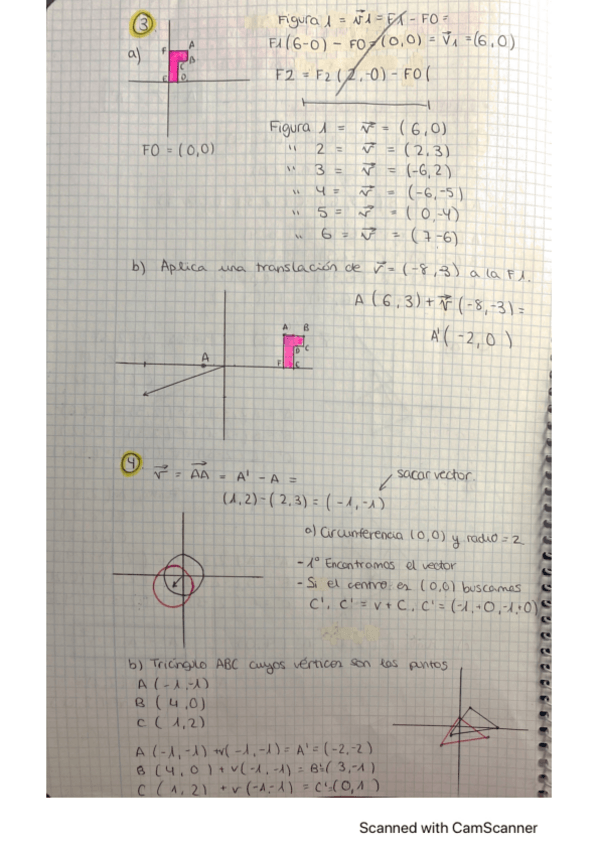 3
Figura 1 = v1 = F1 - F0 =
F1(6-0) - F0 = (0,0) = V1 = (6,0)
a)
F A
B
C
E D
F2 = F2(2,-0) - F0(
F0 = (0,0)
Figura 1 = v = (6,0)
" 2 = v = (2,3)
" 3 = v = (-6,2)
" 4 = v = (-6,-5)
" 5 = v = (0,-4)
" 6 = v = (7-6)
b) Aplica una translación de v = (-8,3) a la F1.
A (6,3) + v (-8,-3) =
A'(-2,0)
A B
D C
F E
A
4
v = AA = A' - A =
sacar vector
(1,2)-(2,3) = (-1,-1)
a) Circunferencia (0,0) y radio = 2
-1º Encontramos el vector
- Si el centro es (0,0) buscamos
C', C' = v + C, C' = (-1,+0,-1,+0)
b) Triángulo ABC cuyos vértices son los puntos
A (-1,-1)
B (4,0)
C (1,2)
A (-1,-1) +v(-1,-1) = A' = (-2,-2)
B (4,0) + v(-1,-1) = B' = (3,-1)
C (1,2) + v(-1,-1) = C' = (0,1)
Scanned with CamScanner